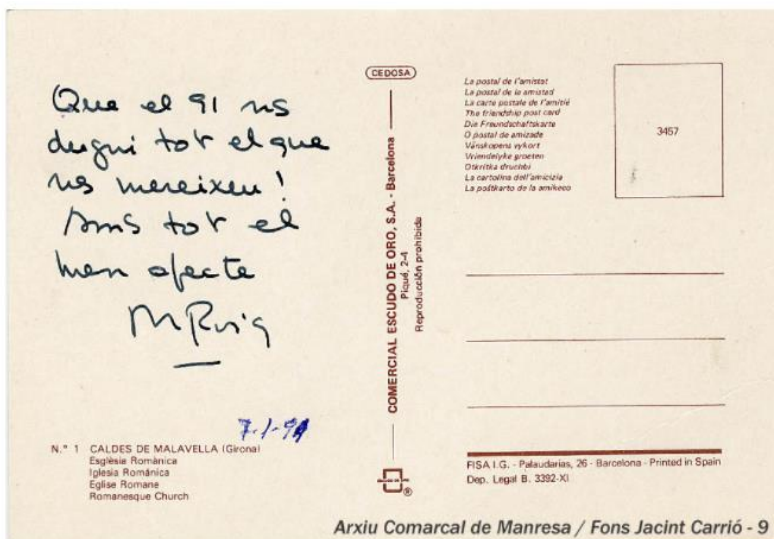 Que el 91 us
dugui tot el que
us mereixeu!
Amb tot el
meu afecte
M Roig
7-1-91
N.° 1 CALDES DE MALAVELLA (Girona)
Església Romànica
Iglesia Románica
Eglise Romane
Romanesque Church
CEDOSA
COMERCIAL ESCUDO DE ORO, S.A. - Barcelona
Piqué, 2-4
Reproducción prohibida
®
La postal de l'amistat
La postal de la amistad
La carte postale de l'amitié
The friendship post card
Die Freundschaftskarte
O postal de amizade
Vänskapens vykort
Vriendelyke groeten
Otkritka druchbi
La cartolina dell'amicizia
La poŝtkarto de la amikeco
3457
FISA I.G. - Palaudarias, 26 - Barcelona - Printed in Spain
Dep. Legal B. 3392-XI
Arxiu Comarcal de Manresa / Fons Jacint Carrió - 9